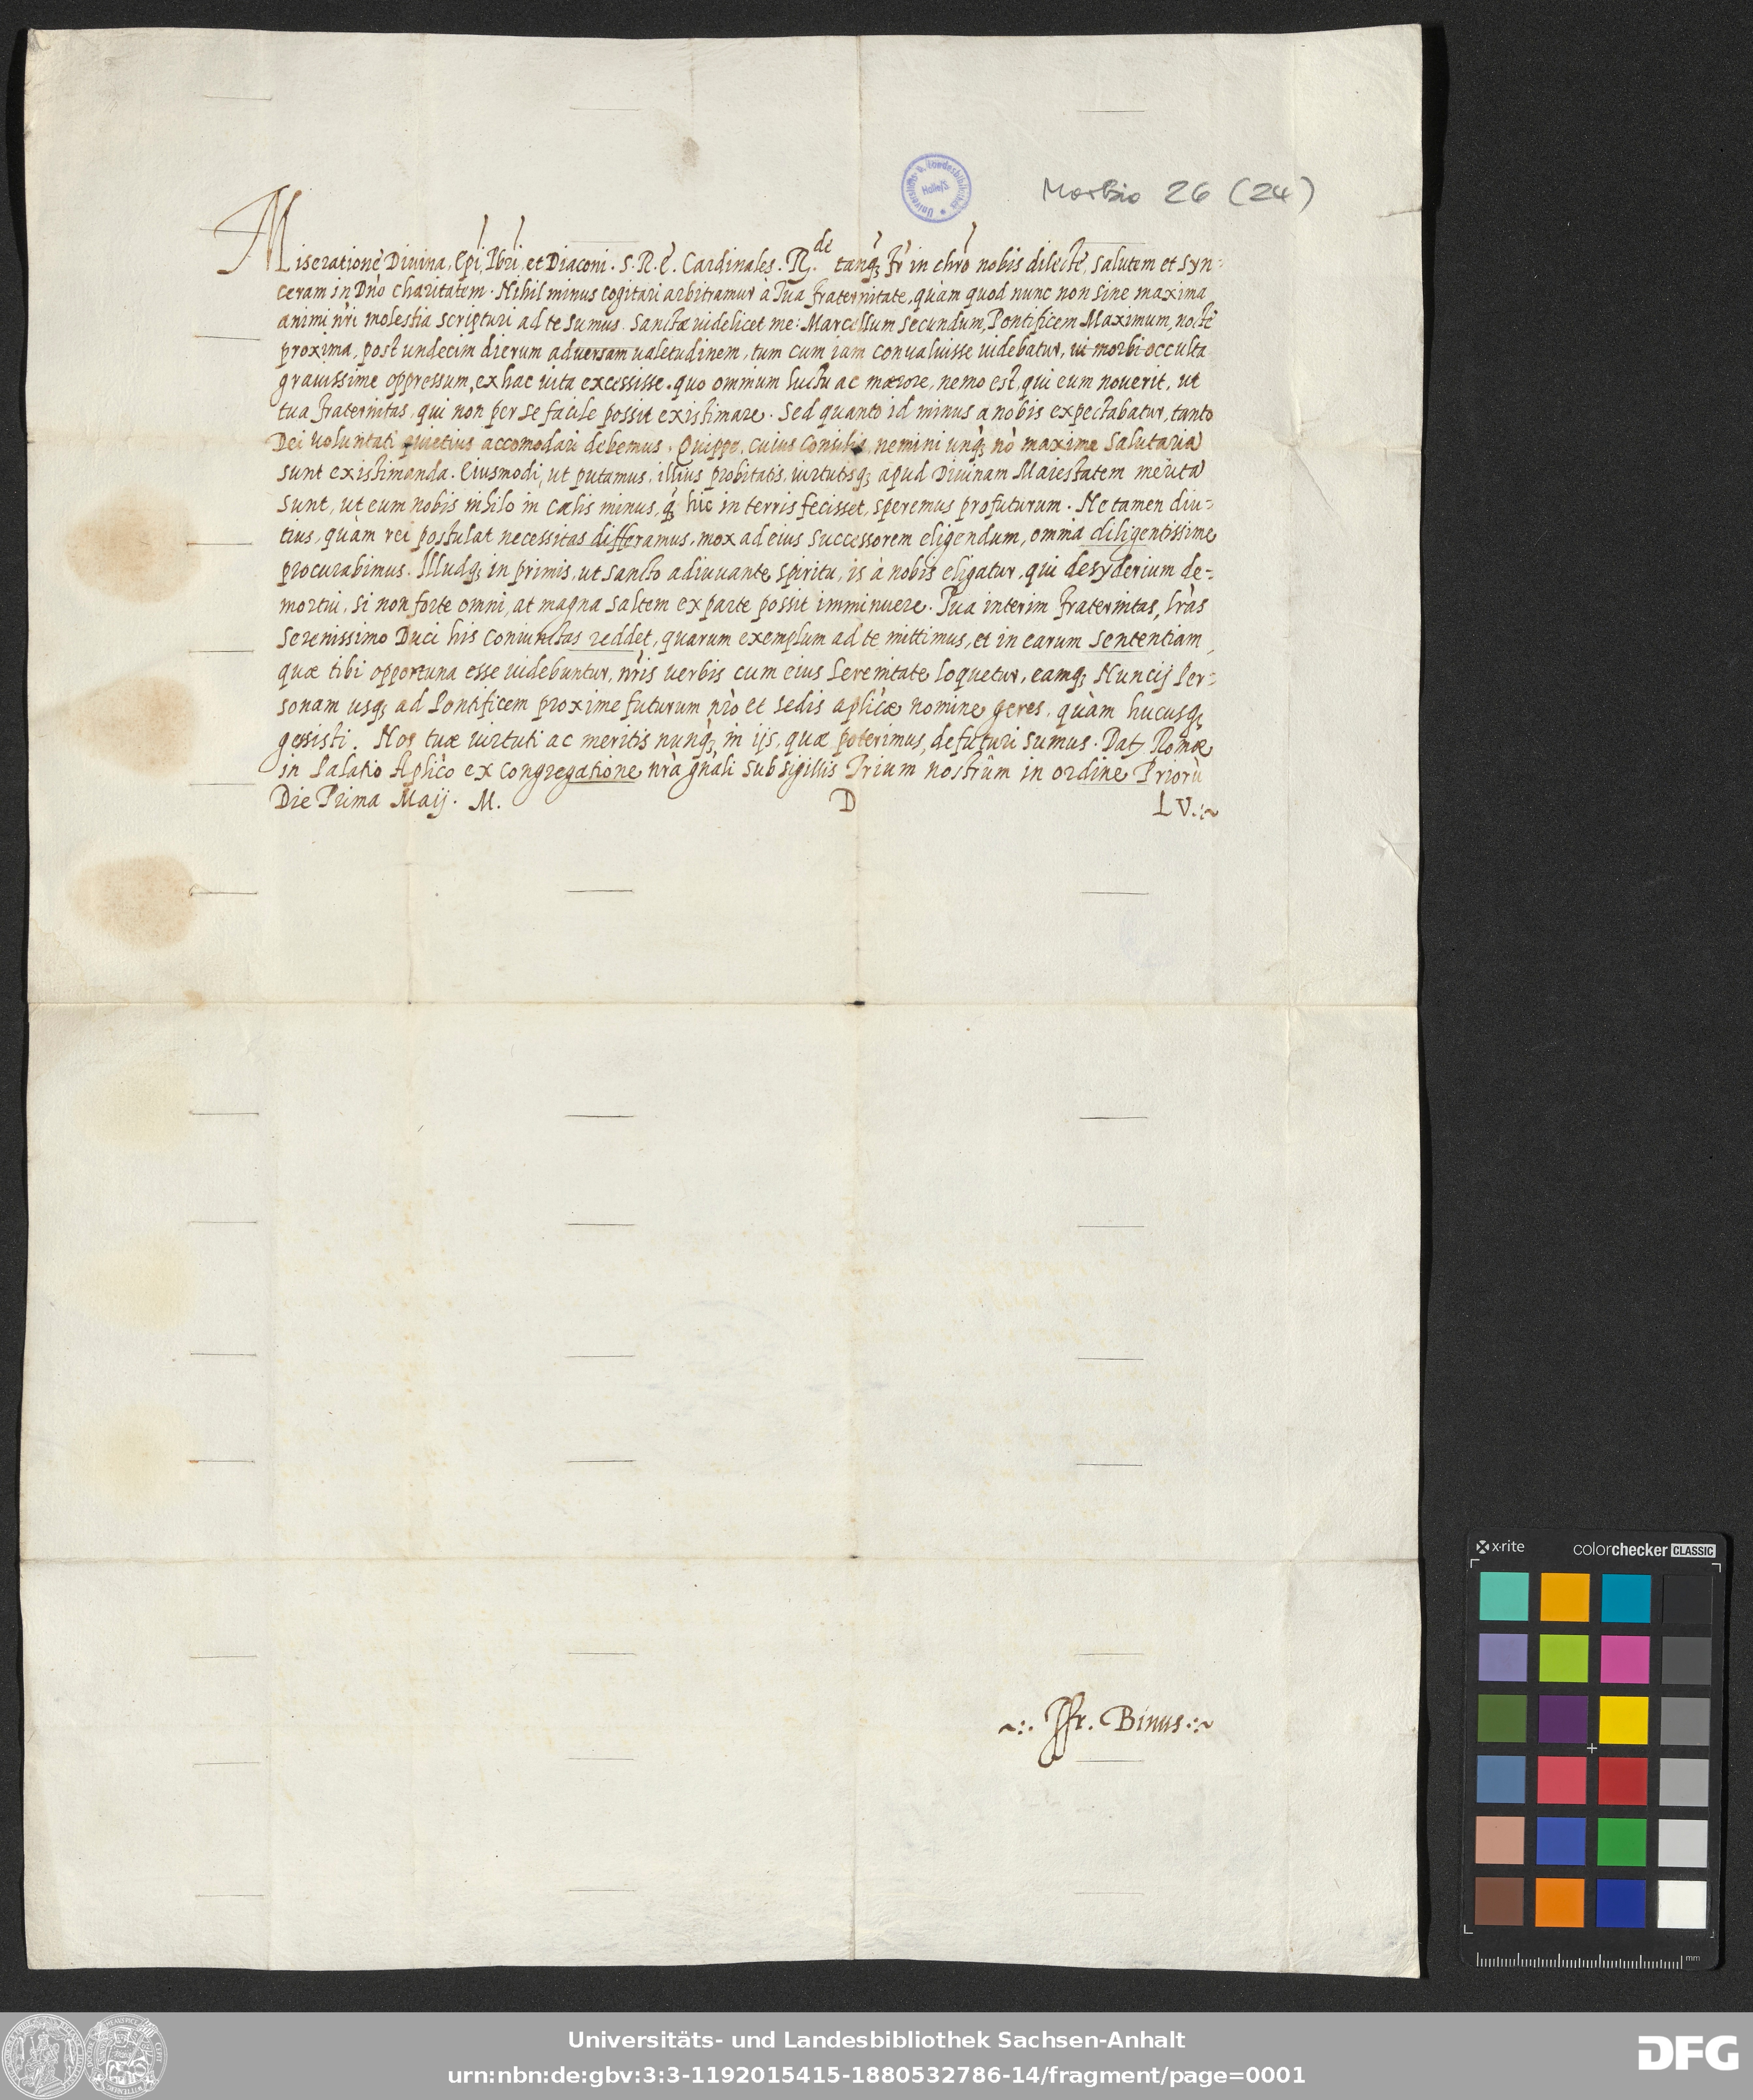 Morbio 26 (24)
Universitäts- u. Landesbibliothek Halle/S
Miseratione Diuina, Epi, Pbri, et Diaconi. S. R. E. Cardinales. R.de tanq; fr in chro nobis dilecte, salutem et syn-
ceram in Dno charitatem. Nihil minus cogitari arbitramur à Tua fraternitate, quàm quod nunc non sine maxima
animi nri molestia scripturi ad te sumus. Sanctæ uidelicet me: Marcellum secundum, Pontificem Maximum, nocte
proxima, post undecim dierum aduersam ualetudinem, tum cum iam conualuisse uidebatur, ui morbi occulta
grauissime oppressum, ex hac uita excessisse. quo omnium luctu ac mærore, nemo est, qui eum nouerit, ut
tua fraternitas, qui non per se facile possit existimare. Sed quanto id minus a nobis expectabatur, tanto
Dei uoluntati quietius accomodari debemus. Quippe, cuius consilia nemini unq; nò maxime salutaria
sunt existimanda. Eiusmodi, ut putamus, illius probitatis, uirtutisq; apud Diuinam Maiestatem merita
sunt, ut eum nobis nihilo in cælis minus, q; hic in terris fecisset, speremus profuturum. Ne tamen diu-
tius, quàm rei postulat necessitas differamus, mox ad eius successorem eligendum, omnia diligentissime
procurabimus. Illudq; in primis, ut sancto adiuuante spiritu, is à nobis eligatur, qui desyderium de-
mortui, si non forte omni, at magna saltem ex parte possit imminuere. Tua interim fraternitas, lras
Serenissimo Duci his coniunctas reddet, quarum exemplum ad te mittimus, et in earum sententiam,
quæ tibi opportuna esse uidebuntur, nris uerbis cum eius Serenitate loquetur, eamq; Nuncij Per-
sonam usq; ad Pontificem proxime futurum nro et sedis aplicæ nomine geres, quàm hucusq;
gessisti. Nos tuæ uirtuti ac meritis nunq; in ijs, quæ poterimus, defuturi sumus. Dat. Romæ
in Palatio Aplico ex congregatione nra gnali sub sigillis Trium nostrûm in ordine Priorù
Die Prima Maij. M. D LV.:~
~:. Jfr. Binus:~
x-rite colorchecker CLASSIC
mm
Universitäts- und Landesbibliothek Sachsen-Anhalt
urn:nbn:de:gbv:3:3-1192015415-1880532786-14/fragment/page=0001
DFG